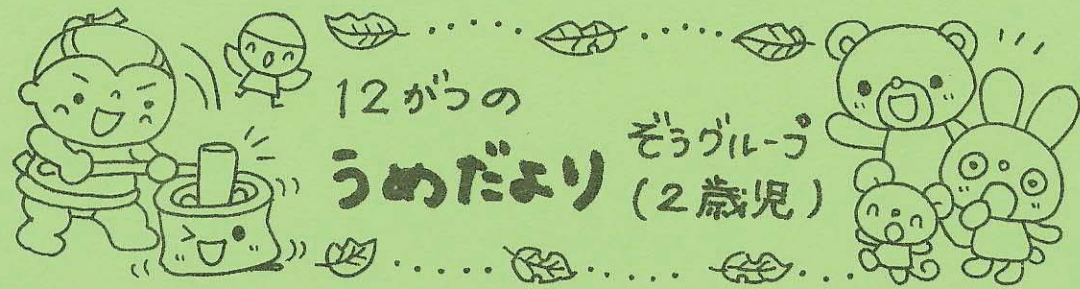 12がつの
うめだより
ぞうグループ
(2歳児)